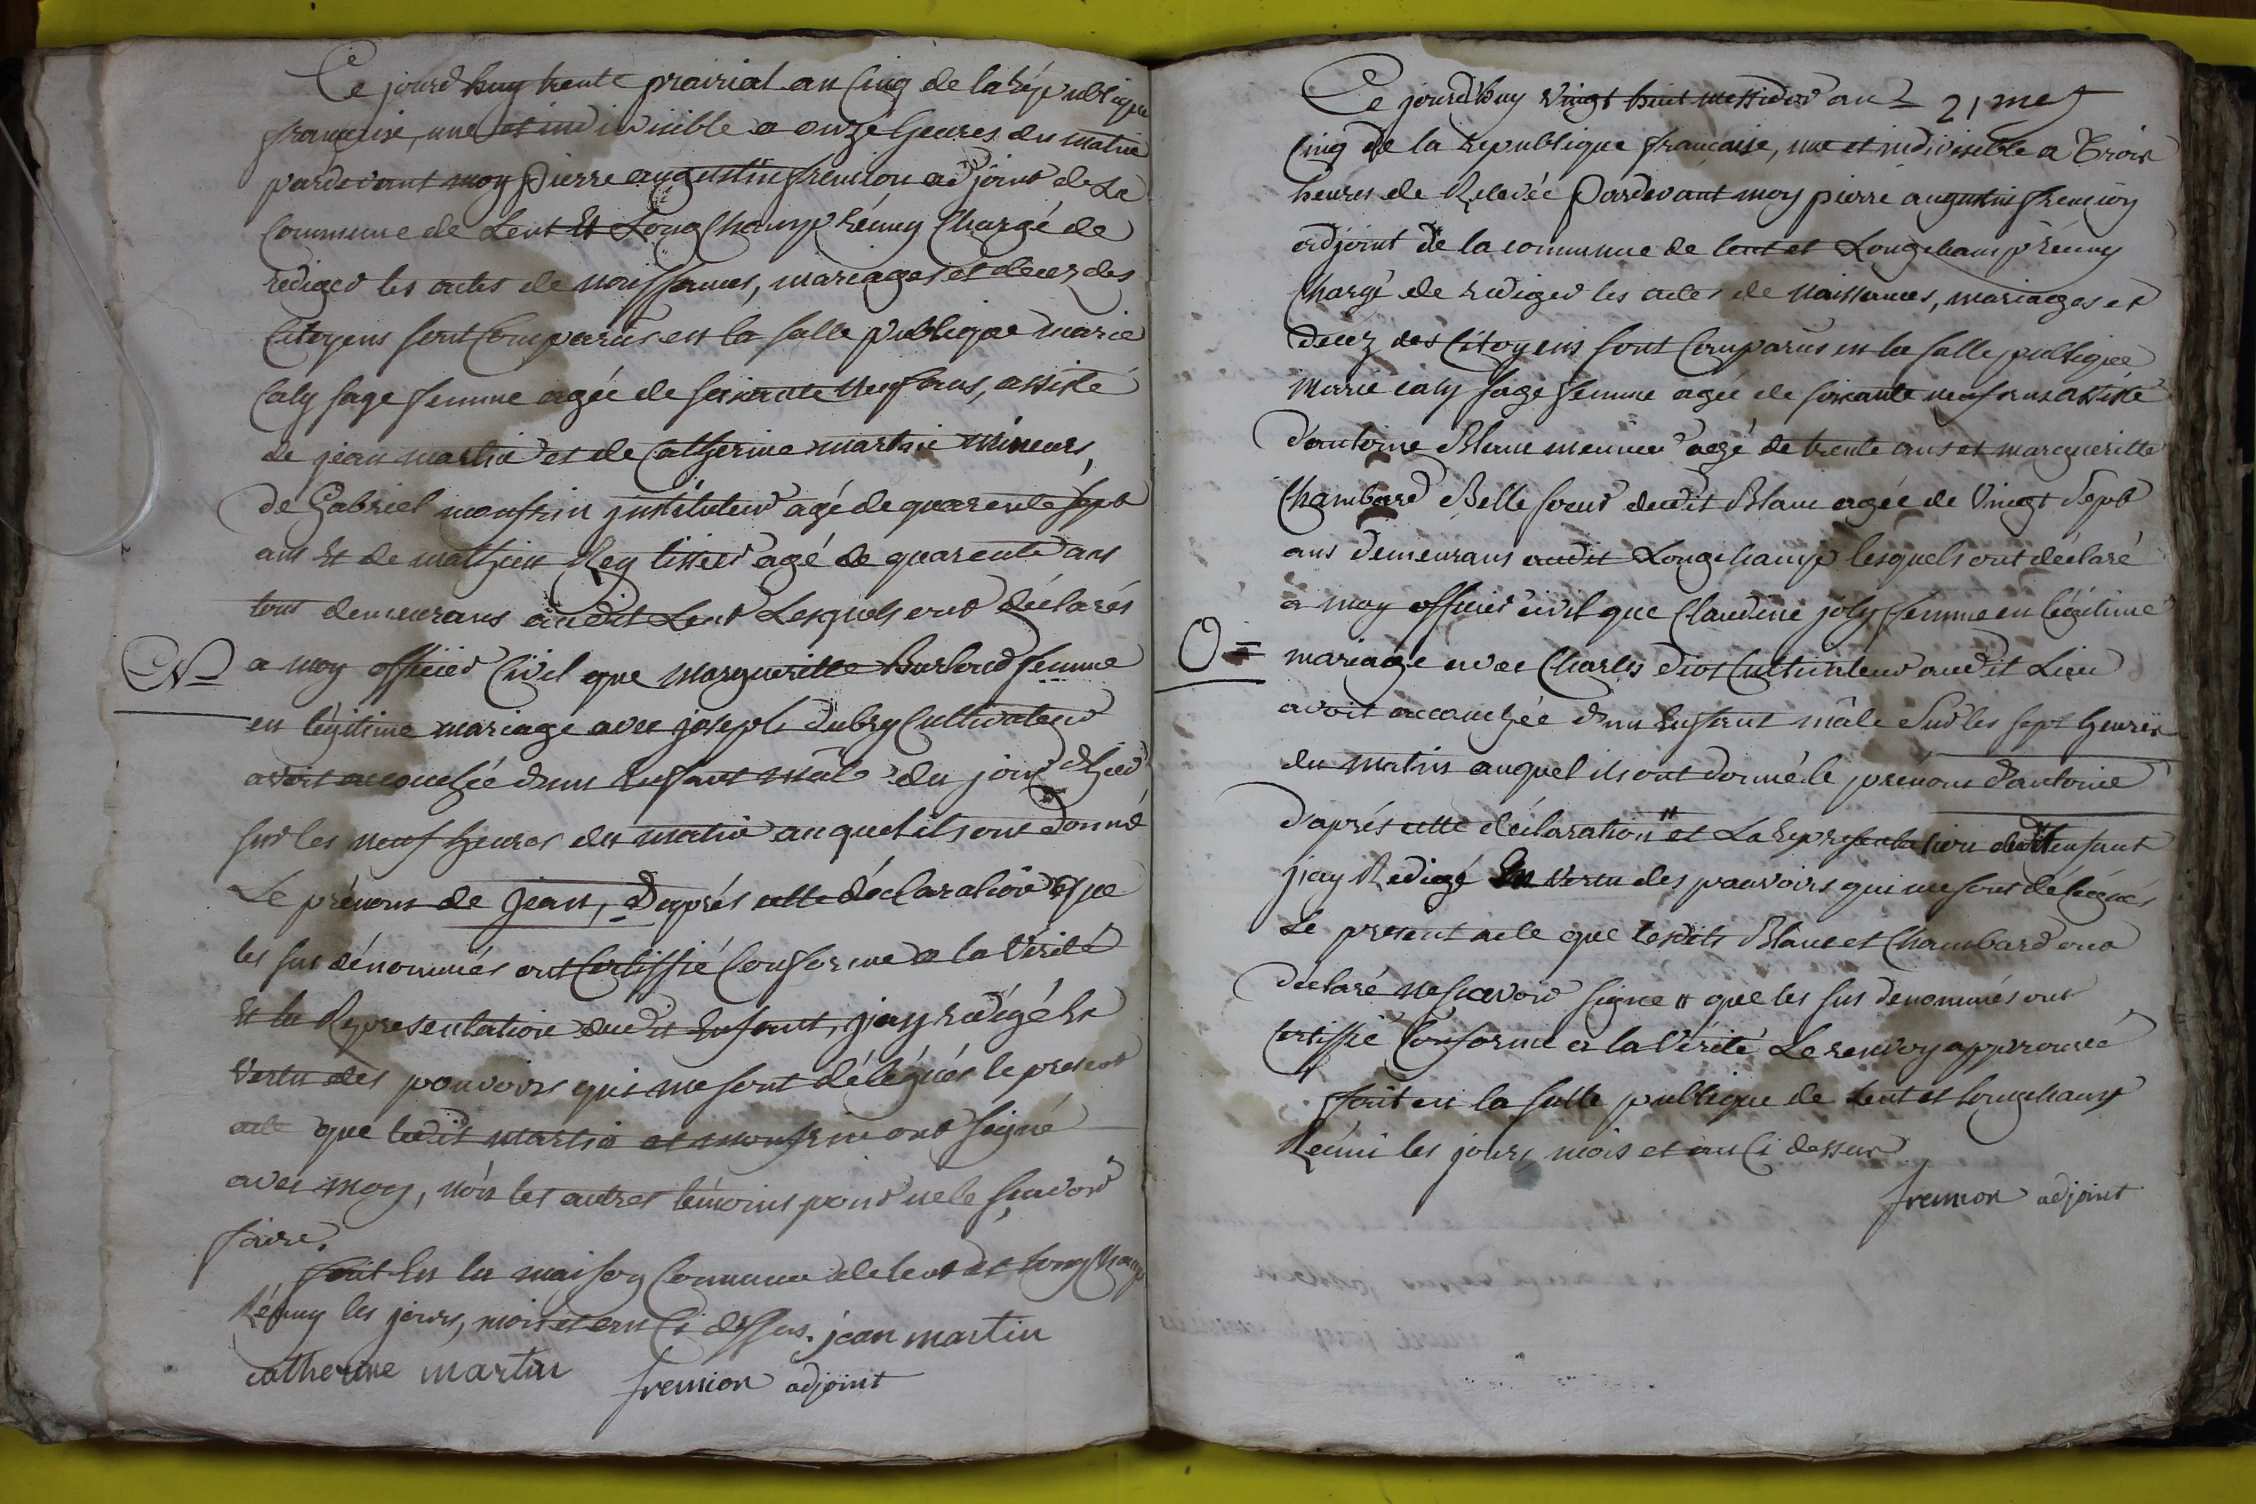 Ce jourd huy trente prairial an Cinq de la République
française, une et indivisible a onze heures du matin
pardevant moy Pierre augustin fremion adjoint de La
Commune de Lent Et LongChamp Réuny Chargé de
rediger les actes de naissances, mariages et décez des
Citoyens sont Comparus en la salle publique marie
Caly sage femme agée de soixante Neuf ans, assisté
de jean martin et de Catherine martin mineurs,
de Gabriel monfrin jnstituteur agé de quarente sept
ans Et de mathieu Rey tissier agé de quarente ans
tous demeurans audit Lent Lesquels ont déclarés
N a moy officier Civil que margueritte Burlond femme
en légitime mariage avec joseph Dubry Cultivateur
avoit accouchée d'un Enfant mâle du jour d'hier
sur les neuf heures du matin auquel ils ont donné
Le prénom de jean, D'après cette déclaration que
les sus dénommés ont Certiffié Conforme a la Vérité
Et la Representation dudit Enfant, j'ay redigé En
Vertu des pouvoirs qui me sont délégués le present
acte que ledit martin et monfrin ont signé
avec moy, nón les autres témoins pour ne le sçavoir
faire.
fait En la maison Commune de lent et LongChamp
Réuny les jours, mois et an Ci dessus. jean martin
catherine martin fremion adjoint
Ce jourd'huy Vingt huit messidor an 21 mes
Cinq de la Republique française, une et indivisible a Trois
heures de Relevée Pardevant moy pierre augustin fremion
adjoint de la commune de lent et Longchamp réuny
Chargé de rediger les actes de Naissances, mariages et
decez des Citoyens sont Comparus en la salle publique
Marie caly sage femme agée de soixante neuf ans assisté
d'antoine Blanc meunier agé de trente ans et margueritte
Chambard Belle soeur dudit Blanc agée de Vingt Sept
ans demeurans audit Longchamp lesquels ont déclaré
a moy officier civil que Claudine joly femme en légitime
O mariage avec Charles diot Cultivateur audit Lieu
avoit accouchée d'un Enfant mâle Sur les sept heures
du matin auquel ils ont donné le prénom d'antoine
d'après cette déclaration " et La Representation dudit enfant
j'ay Redigé En Vertu des pouvoirs qui me sont délégués
Le present acte que lesdits Blanc et Chambard ont
déclaré ne sçavoir signe " que les sus denommés ont
Certiffié Conforme a la Vérité Le renvoy approuvé
fait en la salle publique de Lent et Longchamp
Réuni les jours, mois et an Ci dessus
fremion adjoint